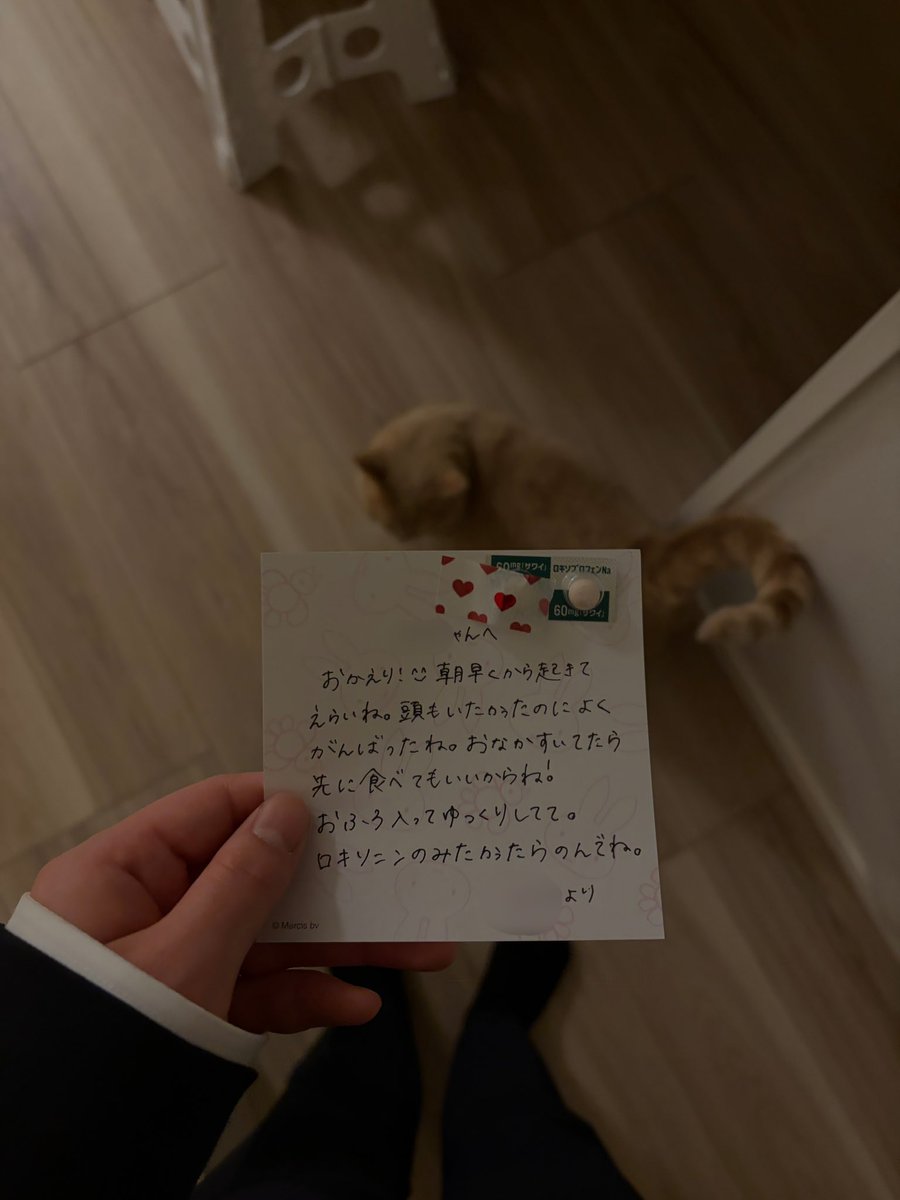 60mg「サワイ」
ロキソプロフェンNa
60mg「サワイ」
ゃんへ
おかえり!^^ 朝早くから起きて
えらいね。頭もいたかったのによく
がんばったね。おなかすいてたら
先に食べてもいいからね!
おふろ入ってゆっくりしてて。
ロキソニンのみたかったらのんでね。
より
© Mercis bv